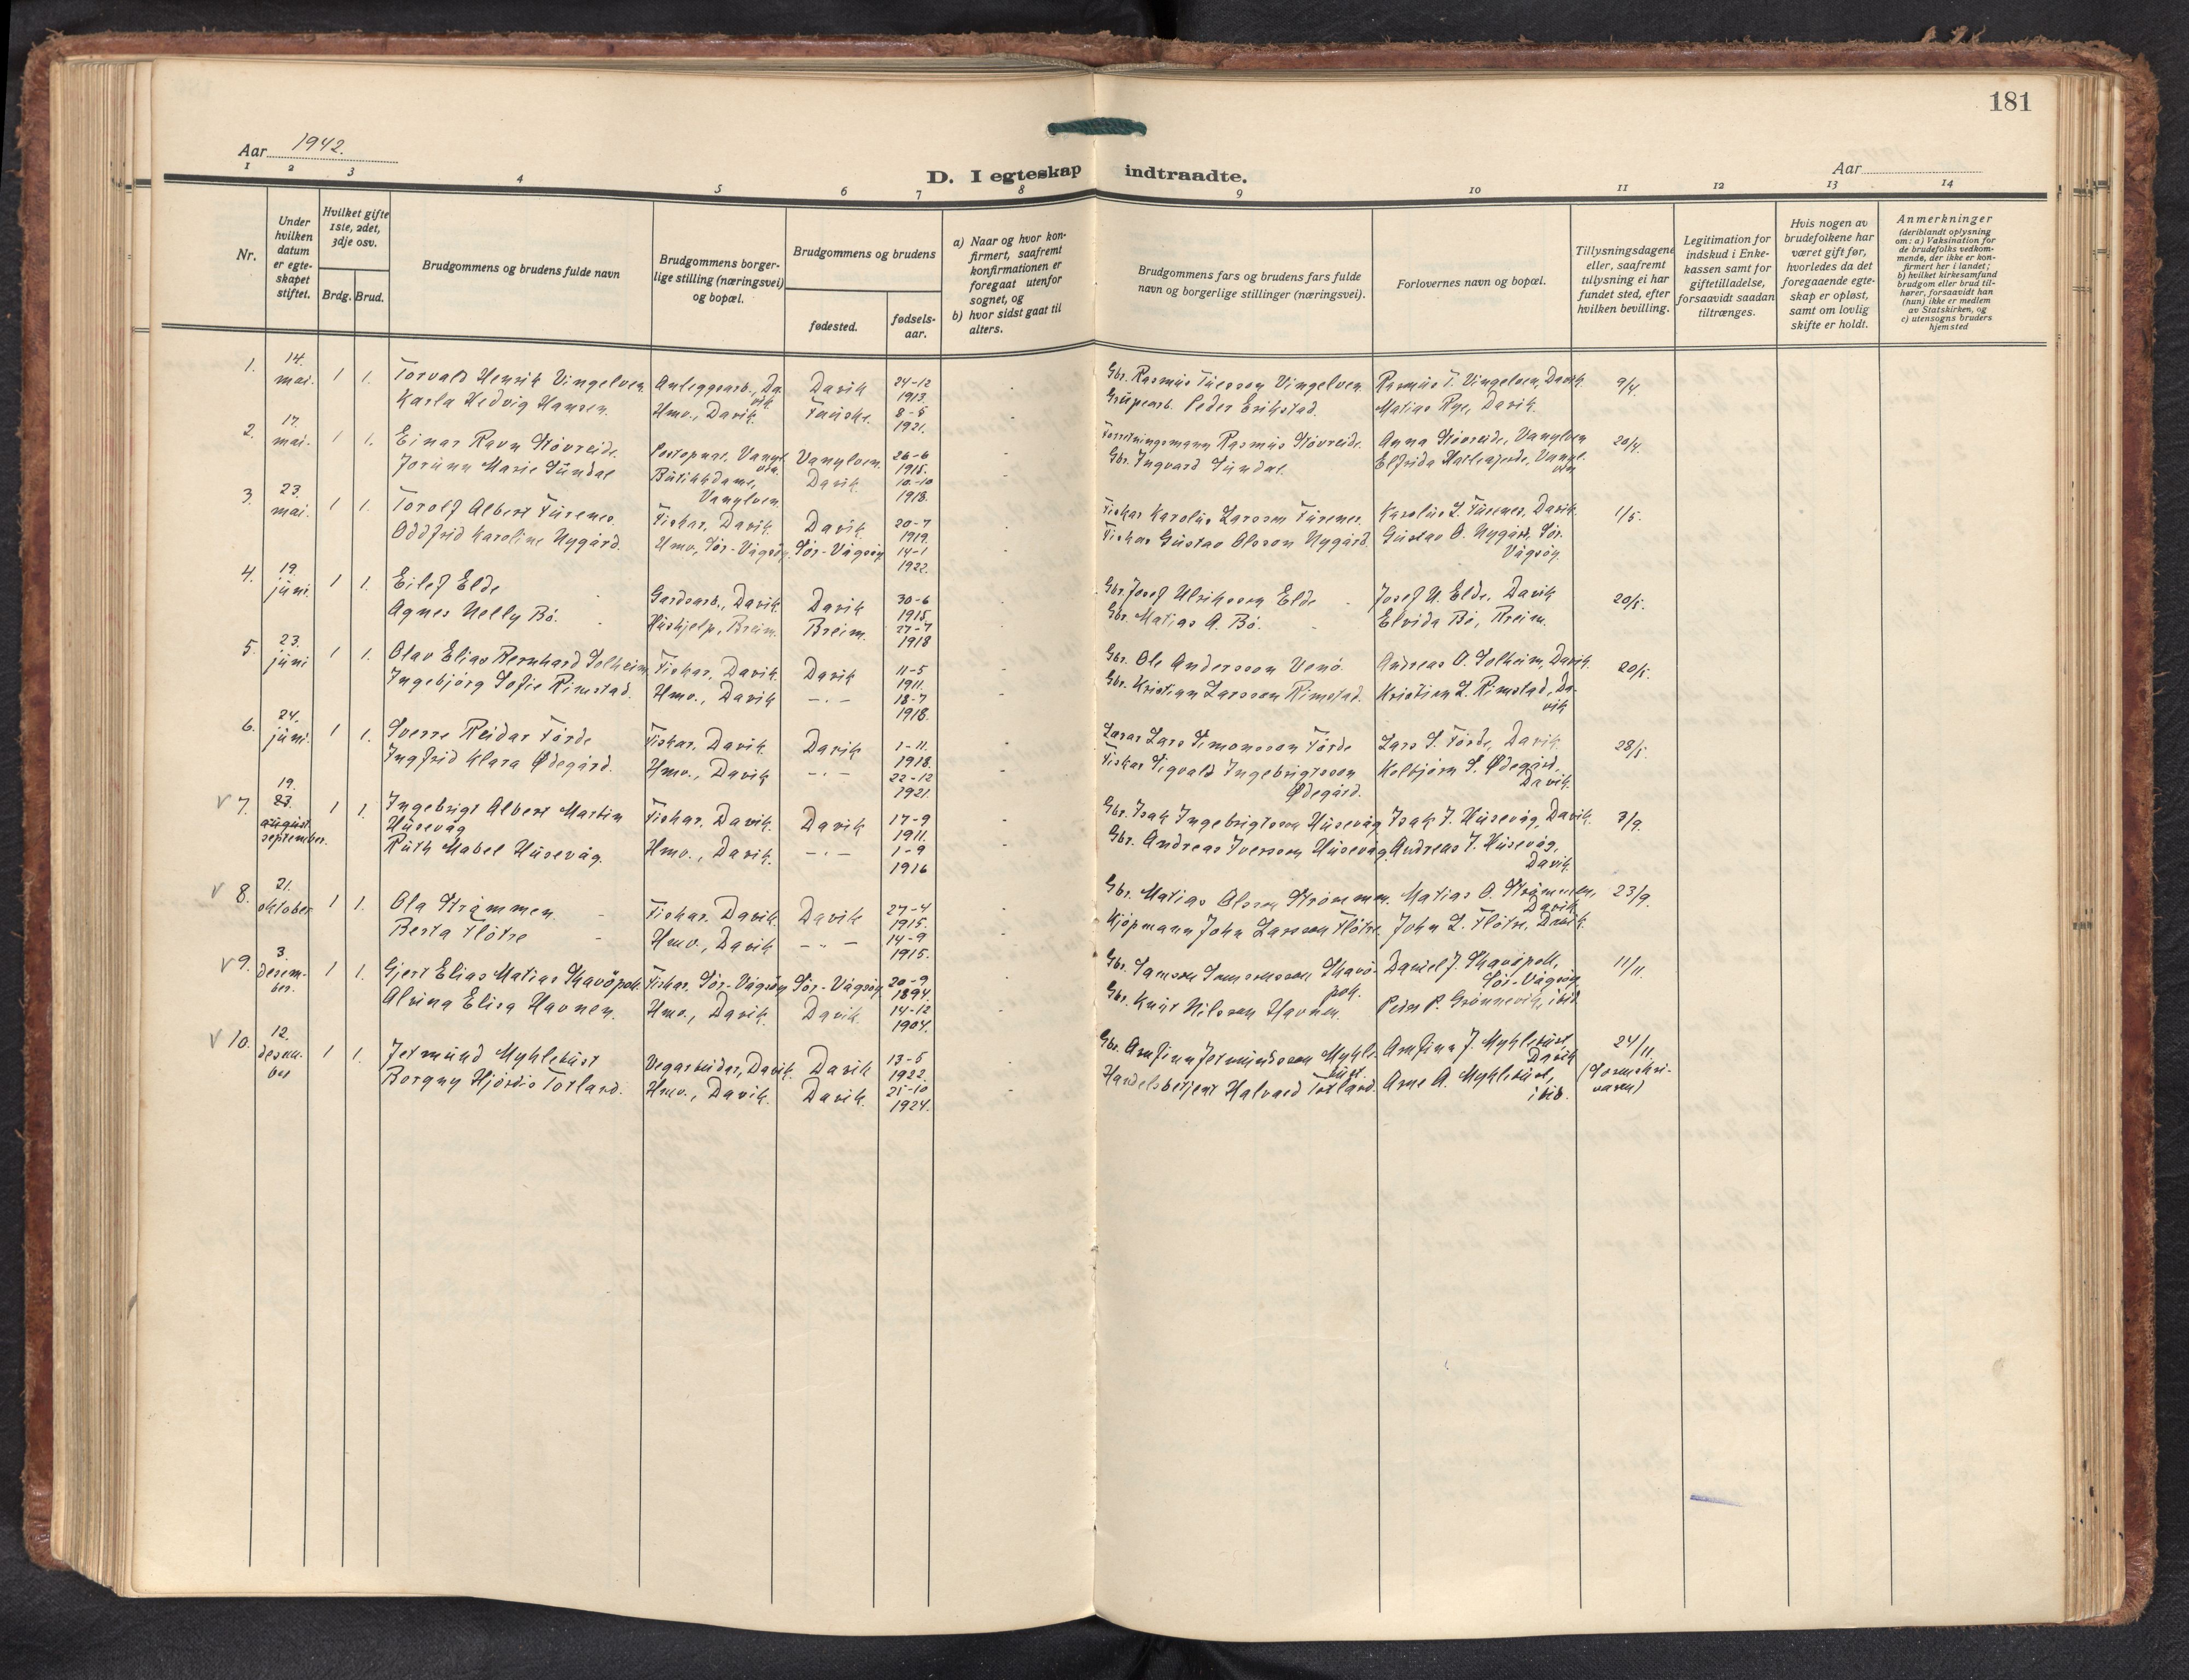 181
Aar 1942.
Aar
D. I egteskap indtraadte.
1 2 3 4 5 6 7 8 9 10 11 12 13 14
Nr.
Under hvilken datum er egte- skapet stiftet.
Hvilket gifte 1ste, 2det, 3dje osv.
Brdg. Brud.
Brudgommens og brudens fulde navn
Brudgommens borger- lige stilling (næringsvei) og bopæl.
Brudgommens og brudens
fødested.
fødsels- aar.
a) Naar og hvor kon- firmert, saafremt konfirmationen er foregaat utenfor sognet, og
b) hvor sidst gaat til alters.
Brudgommens fars og brudens fars fulde navn og borgerlige stillinger (næringsvei).
Forlovernes navn og bopæl.
Tillysningsdagene eller, saafremt tilysning ei har fundet sted, efter hvilken bevilling.
Legitimation for indskud i Enke- kassen samt for giftetilladelse, forsaavidt saadan tiltrænges.
Hvis nogen av brudefolkene har været gift før, hvorledes da det foregaaende egte- skap er opløst, samt om lovlig skifte er holdt.
Anmerkninger (deriblandt oplysning om: a) Vaksination for de brudefolks vedkom- mende, der ikke er kon- firmert her i landet; b) hvilket kirkesamfund brudgom eller brud til- hører, forsaavidt han (hun) ikke er medlem av Statskirken, og c) utensogns bruders hjemsted
1. 14. mai. 1 1. Torvald Henrik Vingelven Anleggsarb., Davik Davik 24-12 1913. - Gbr. Rasmus Vingelven. Rasmus T. Vingelven, Davik 9/4.
Karla Hedvig Hansen. Hmv., Davik. Fauske. 8-5 1921. Peder Erikstad. Matias Rye, Davik.
2. 17. mai. 1 1. Einar Ravn Støvreide. Vanylven. 26-6 1915. - Forretningsmann Rasmus Støvreide. Anna Støvreide, Vanylven 20/4.
Jorunn Marie Sundal Butikkdame, Vanylven Davik. 10-10 1918. Gbr. Ingvard Sundal. Elfrida
3. 23. mai. 1 1. Torolf Albert Furenes. Fiskar, Davik. Davik 20-7 1919. - Fiskar Karolus Larsson Furenes. Karolus L. Furenes, Davik. 1/5.
Oddfrid Karoline Nygård. Hmv, Sør-Vågsøy. Sør-Vågsøy 14-1 1922. Fiskar Gustav Olsson Nygård. Gustav O. Nygård, Sør- Vågsøy.
4. 19. juni. 1 1. Eilef Elde Gardsarb., Davik Davik 30-6 1915. - Gbr. Josef Ulriksson Elde Josef U. Elde, Davik 20/5.
Agnes Nelly Bø. Hushjelp, Breim. Breim. 27-7 1918 Gbr. Matias A. Bø. Elvida Bø, Breim.
5. 23. juni 1 1. Olav Elias Bernhard Solheim Fiskar, Davik. Davik 11-5 1911. - Gbr. Ole Andersson Vemø. Andreas O. Solheim, Davik. 20/5.
Ingebjørg Sofie Rimstad. Hmv., Davik -.- 18-7 1918. Gbr. Kristian Larsson Rimstad. Kristian L. Rimstad, Da- vik
6. 24. juni. 1 1. Sverre Reidar Førde Fiskar, Davik Davik 1-11. 1918. - Lærar Lars Simonsson Førde Lars S. Førde, Davik. 28/5.
Ingfrid Klara Ødegård. Hmv., Davik -.- 22-12 1921. Fiskar Sigvald Ingebrigtsson Ødegård. Kolbjørn S. Ødegård, Davik.
V 7. 19. 23. august. september. 1 1. Ingebrigt Albert Martin Husevåg Fiskar, Davik. Davik 17-9 1911. - Gbr. Isak Ingebrigtsson Husevåg Isak I. Husevåg, Davik. 3/9.
Ruth Mabel Husevåg. Hmv., Davik. -.- 1-9 1916 Gbr. Andreas Iversson Husevåg. Andreas I. Husevåg, Davik.
V 8. 21. oktober 1 1. Ola Strømmen Fiskar, Davik. Davik 27-4 1915. - Gbr. Matias Olsson Strømmen. Matias O. Strømmen, Davik. 23/9.
Berta Fløtre Hmv., Davik -.- 14-9 1915. Kjøpmann John Larsson Fløtre. John L. Fløtre, Davik.
V 9. 3. desem- ber. 1 1. Gjert Elias Matias Skavøpoll. Fiskar, Sør-Vågsøy Sør-Vågsøy 20-9 1894. - Gbr. Samson Samsonsson Skavø- poll. Daniel J. Skavøpoll, Sør-Vågsøy 11/11.
Alvina Elisa Havnen. Hmv., Davik. Davik. 14-12 1904. Gbr. Knut Nilsson Havnen. Peder P. Grønnevik, ibid.
V 10. 12. desem- ber 1 1. Jetmund Myklebust Vegarbeidar, Davik. Davik 13-5 1922. - Gbr. Arnfinn Jetmundsson Mykle- bust. Arnfinn J. Myklebust, Davik 24/11.
Borgny Hjørdis Totland. Hmv., Davik. Davik. 25-10 1924. Handelsbetjent Halvard Totland. Arne A. Myklebust, ibid. (Sorenskri- varen)